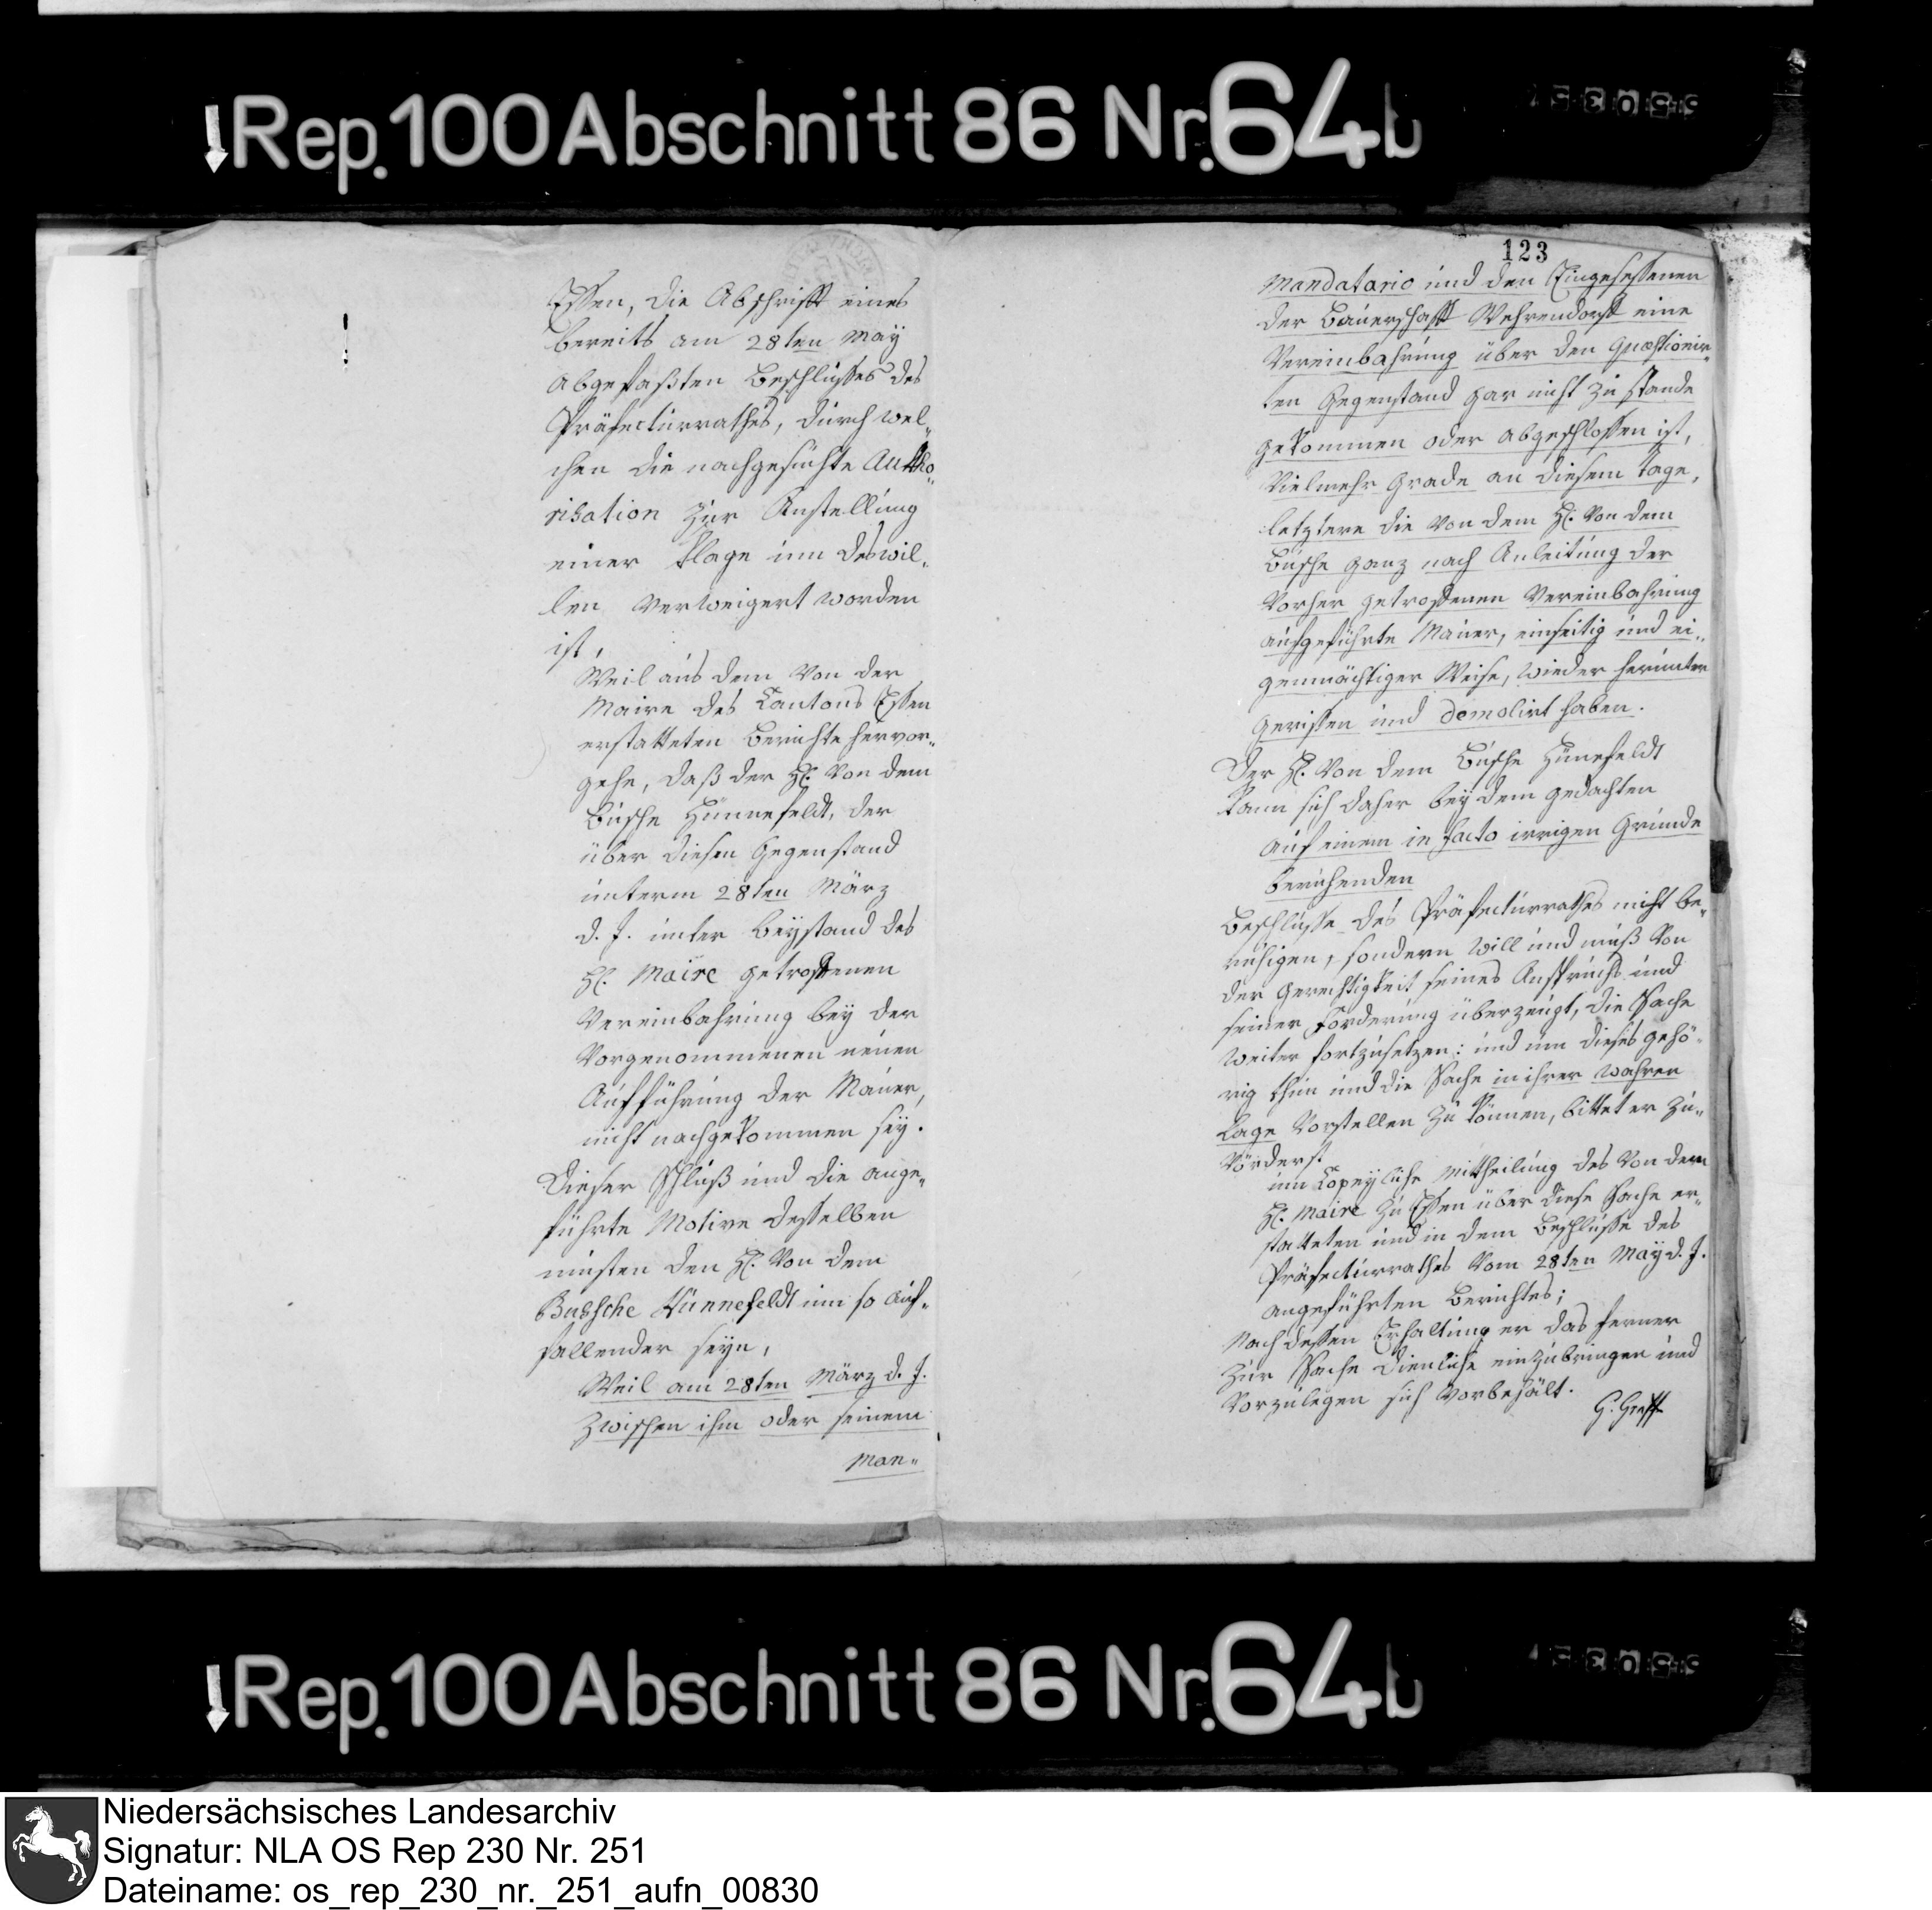 Rep. 100 Abschnitt 86 Nr. 64b
Essen, die Abschrifft eines
bereits am 28ten May
abgefaßten Beschlusses des
Präfecturrathes, durch wel„
chen die nachgesuchte Autho„
risation zur Anstellung
einer Klage um deswil„
len verweigert worden
ist,
Weil aus dem von der
Maire des Cantons Essen
erstatteten Berichte hervor„
gehe, daß der H. von dem
Busche Hünnefeldt, der
über diesen Gegenstand
unterm 28ten März
d. J. unter Beystand des
H. Maire getroffenen
Vereinbahrung bey der
vorgenommenen neuen
Aufführung der Mauer,
nicht nachgekommen sey.
Dieser Schluß und die ange„
führte Motive desselben
musten den H. von dem
Bussche Hünnefeldt um so auf„
fallender seyn,
Weil am 28ten März d. J.
zwischen ihm oder seinem
Man„
123
Mandatario und den Eingesessenen
der Bauerschafft Wehrendorff eine
Vereinbahrung über den quæstionir„
ten Gegenstand gar nicht zu stande
gekommen oder abgeschlossen ist,
vielmehr grade an diesem tage,
letztere die von dem H. von dem
Busche ganz nach Anleitung der
vorher getroffenen Vereinbahrung
aufgeführte Mauer, einseitig und ei„
genmächtiger Weise, wieder herunter
gerissen und demolirt haben.
Der H. von dem Busche Hünefeldt
kann sich daher bey dem gedachten
auf einem in facto irrigen Grunde
beruhenden
Beschlusse des Präfecturrathes nicht be„
ruhigen, sondern will und muß von
der Gerechtigkeit seines Anspruchs und
seiner Forderung überzeugt, die Sache
weiter fortzusetzen: und um dieses gehö„
rig thun und die Sache in ihrer wahren
Lage vorstellen zu können, bittet er zu„
vörderst
um Copeyliche Mittheilung des von dem
H. Maire zu Essen über diese Sache er„
statteten und in dem Beschlusse des
Präfecturrathes vom 28ten May d. J.
angeführten Berichtes;
Nach dessen Erhaltung er das ferner
zur Sache dienliche einzubringen und
vorzulegen sich vorbehält.
G. Greff
Rep. 100 Abschnitt 86 Nr. 64b
Niedersächsisches Landesarchiv
Signatur: NLA OS Rep 230 Nr. 251
Dateiname: os_rep_230_nr._251_aufn_00830